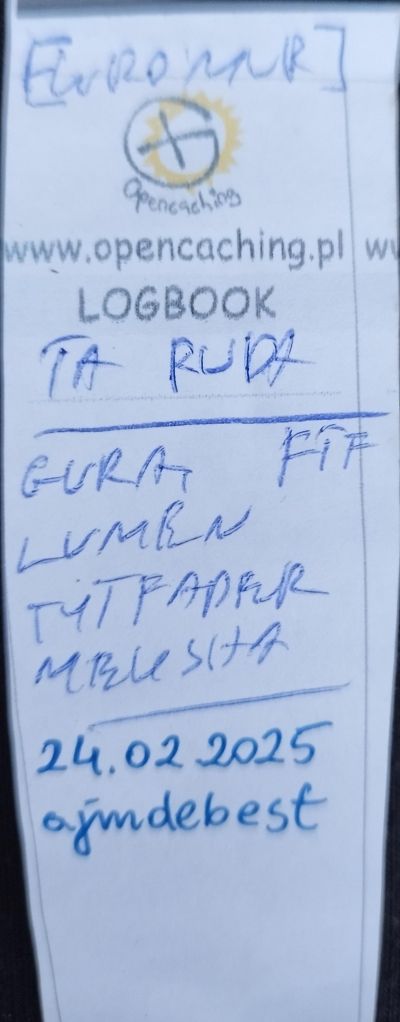 Opencaching
www.opencaching.pl ww
LOGBOOK
TA RUDA
GURA, FTF
LUMEN
TYTFADER
24.02.2025
ajmdebest